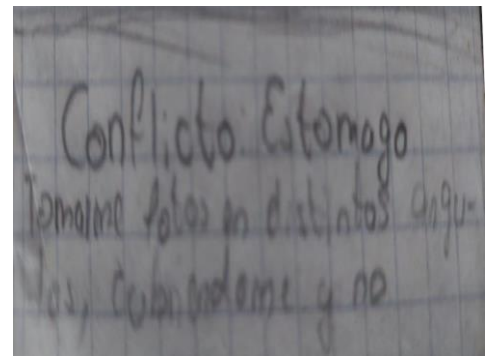 Conflicto Estomago
Tomarme fotos en distintos angu-
los, cubriendome y no